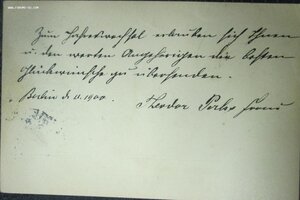 Zum Jahreswechsel erlauben sich Ihnen
u. den werten Angehörigen die besten
Glückwünsche zu übersenden.
Berlin d. 1900
Theodor